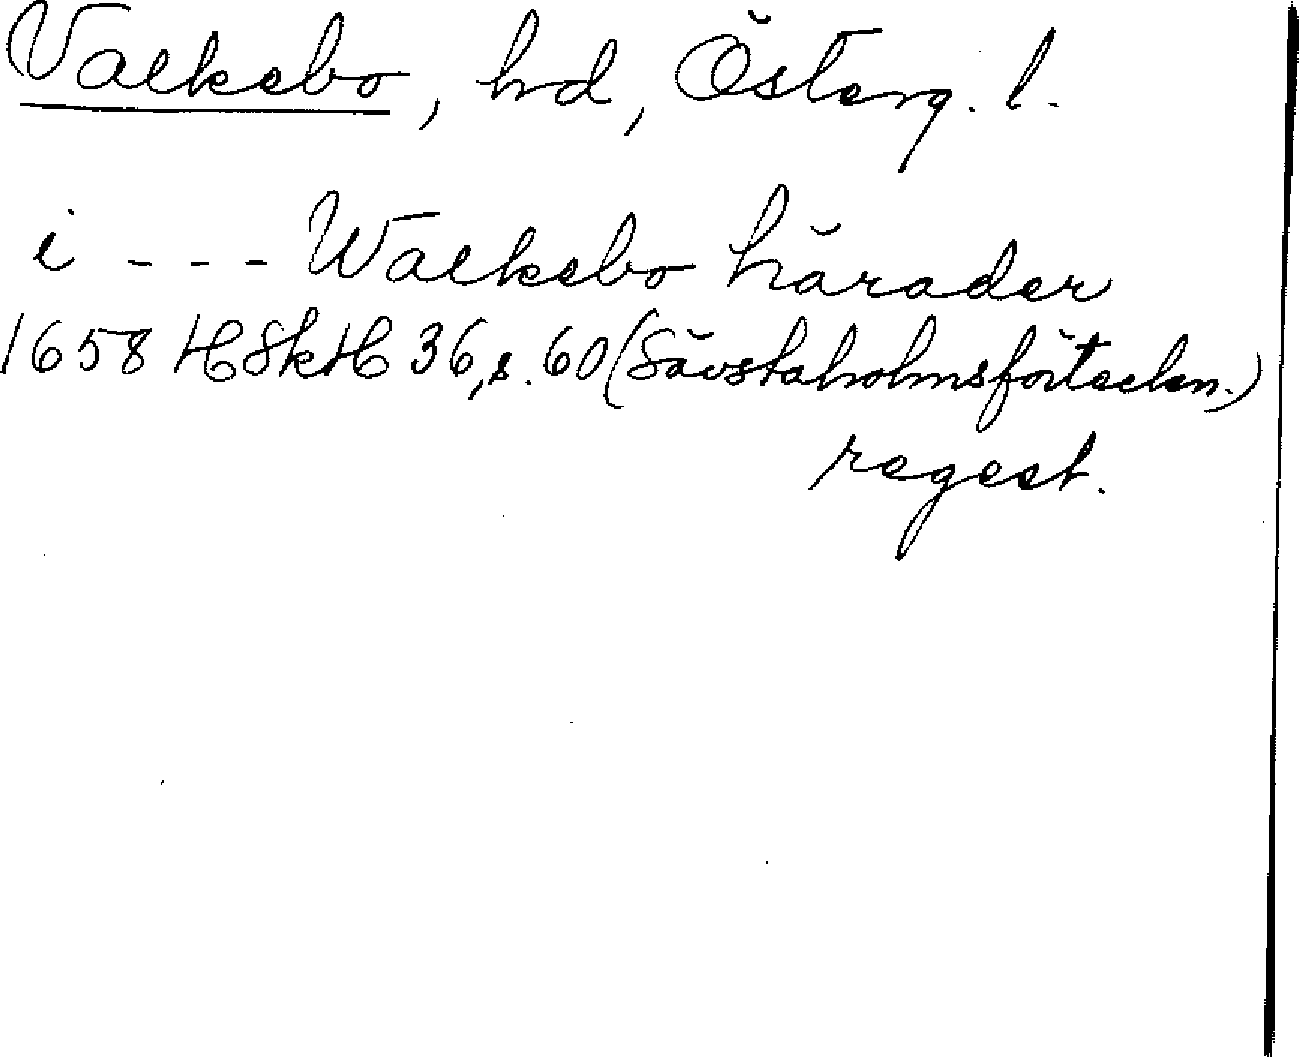 Valkebo, hd, Österg. l.
i - - - Walkebo härader
1658 HSkH 36, s. 60 (Sävstaholmsförteckn.)
regest.